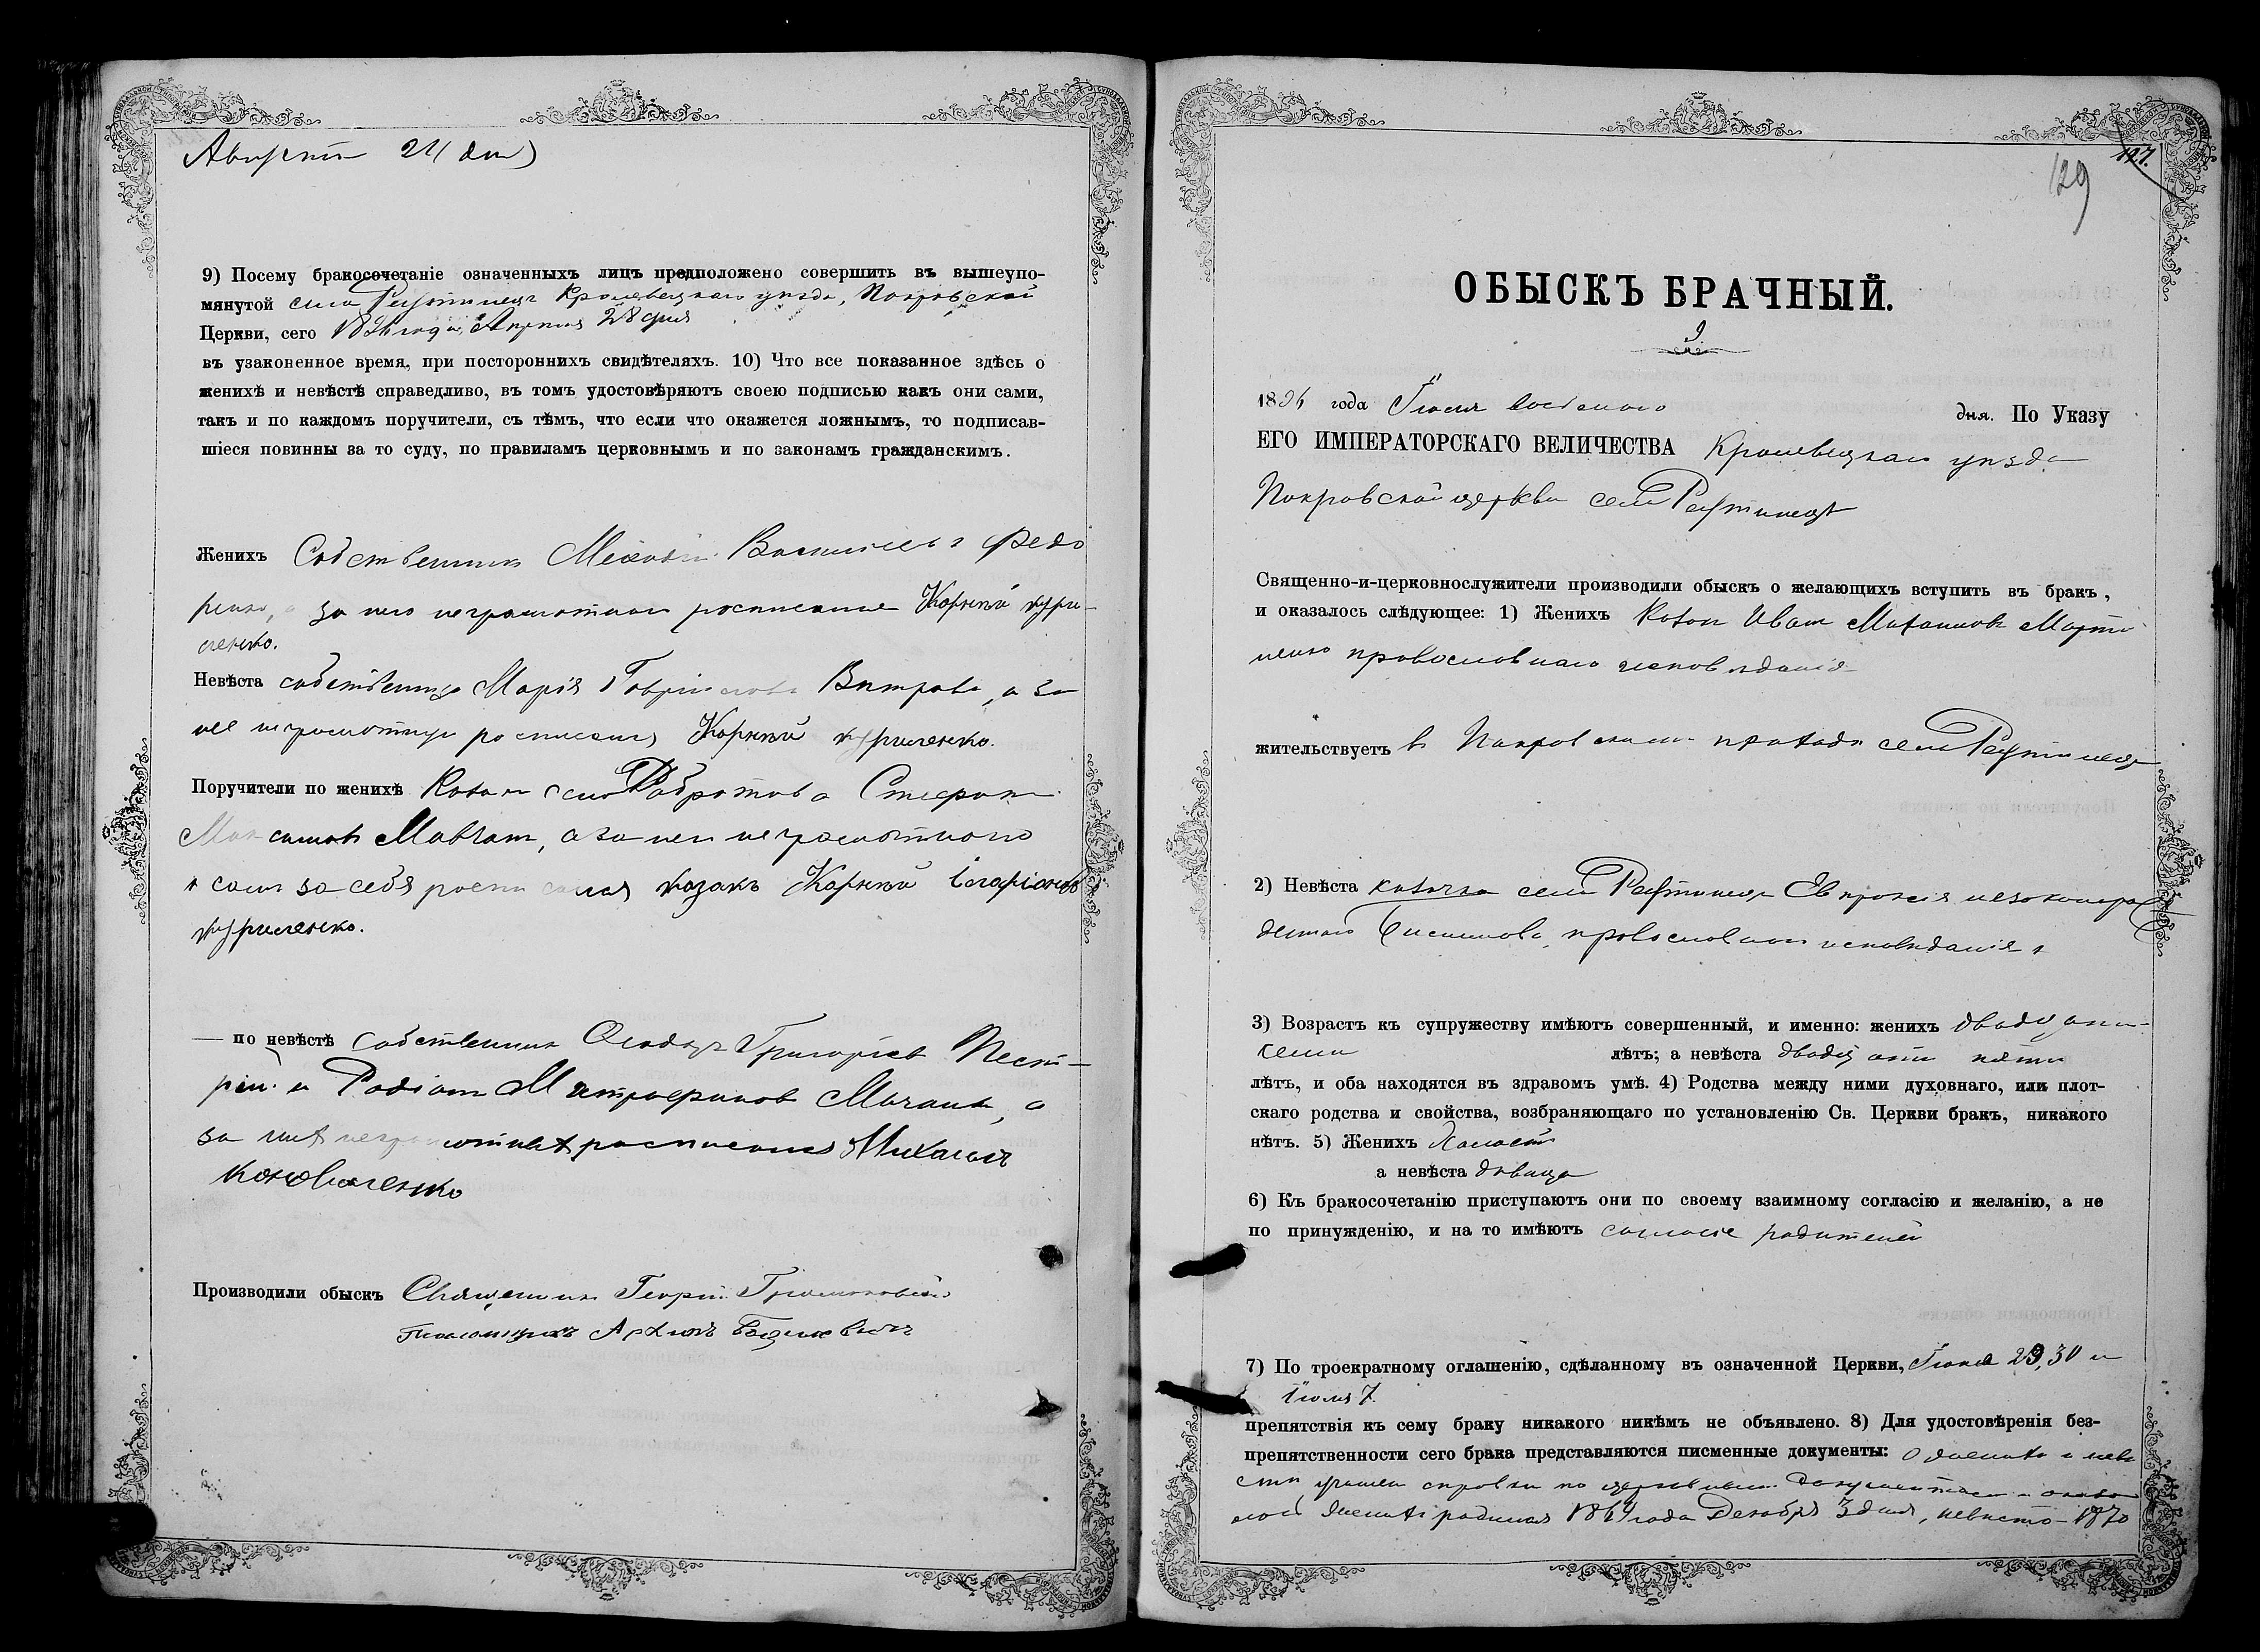 Августа 21 (дня)
9) Посему бракосочетаніе означенныхъ лицъ предположено совершить въ вышеупо-
мянутой села Реутинецъ Кролевецкаго уѣзда, Покровской
Церкви, сего года, Апрѣля 28 дня
въ узаконенное время, при постороннихъ свидѣтеляхъ. 10) Что все показанное здѣсь о
женихѣ и невѣстѣ справедливо, въ томъ удостовѣряютъ своею подписью какъ они сами,
такъ и по каждомъ поручители, съ тѣмъ, что если что окажется ложнымъ, то подписав-
шіеся повинны за то суду, по правиламъ церковнымъ и по законамъ гражданскимъ.
Женихъ Собственникъ Васильевъ Федо
ренко, а за него неграмотнаго росписался Корнѣй Кури-
ленко.
Невѣста собственница Марія Гавріилова Вѣтрова, а за
нее неграмотную росписался Корнѣй Куриленко.
Поручители по женихѣ Козакъ села Добротова Стефанъ
Максимовъ Мовчанъ, а за него неграмотного
и самъ за себя росписался козакъ Корнѣй
Куриленко.
— по невѣстѣ собственники Григоріевъ
и Родіонъ Митрофановъ а
за нихъ неграмотныхъ росписался Михаилъ
Коноваленко
Производили обыскъ Священникъ Георгій
Псаломщикъ
127.
129
ОБЫСКЪ БРАЧНЫЙ.
9
1896 года Іюля восьмого дня. По Указу
ЕГО ИМПЕРАТОРСКАГО ВЕЛИЧЕСТВА Кролевецкаго уѣзда
Покровской церкви села Реутинецъ
Священно-и-церковнослужители производили обыскъ о желающихъ вступить въ бракъ,
и оказалось слѣдующее: 1) Женихъ Козакъ Иванъ Михаиловъ Марти
ненко православнаго исповѣданія
жительствуетъ въ Покровскомъ приходѣ села Реутинецъ
2) Невѣста козачка села Реутинецъ Евпраксія незаконорож
денная православнаго исповѣданія
3) Возрастъ къ супружеству имѣютъ совершенный, и именно: женихъ двадцати
семи лѣтъ; а невѣста двадцати пяти
лѣтъ, и оба находятся въ здравомъ умѣ. 4) Родства между ними духовнаго, или плот-
скаго родства и свойства, возбраняющаго по установленію Св. Церкви бракъ, никакого
нѣтъ. 5) Женихъ Холостъ
а невѣста дѣвица
6) Къ бракосочетанію приступаютъ они по своему взаимному согласію и желанію, а не
по принужденію, и на то имѣютъ согласіе родителей
7) По троекратному оглашенію, сдѣланному въ означенной Церкви, Іюня 29, 30 и
Іюля 7.
препятствія къ сему браку никакого никѣмъ не объявлено. 8) Для удостовѣренія без-
препятственности сего брака представляются писменные документы: О женихѣ и невѣ
стѣ учинена справка по церковнымъ документамъ и оказа
лось женихъ родился года Декабря 3 дня, невѣста 1870